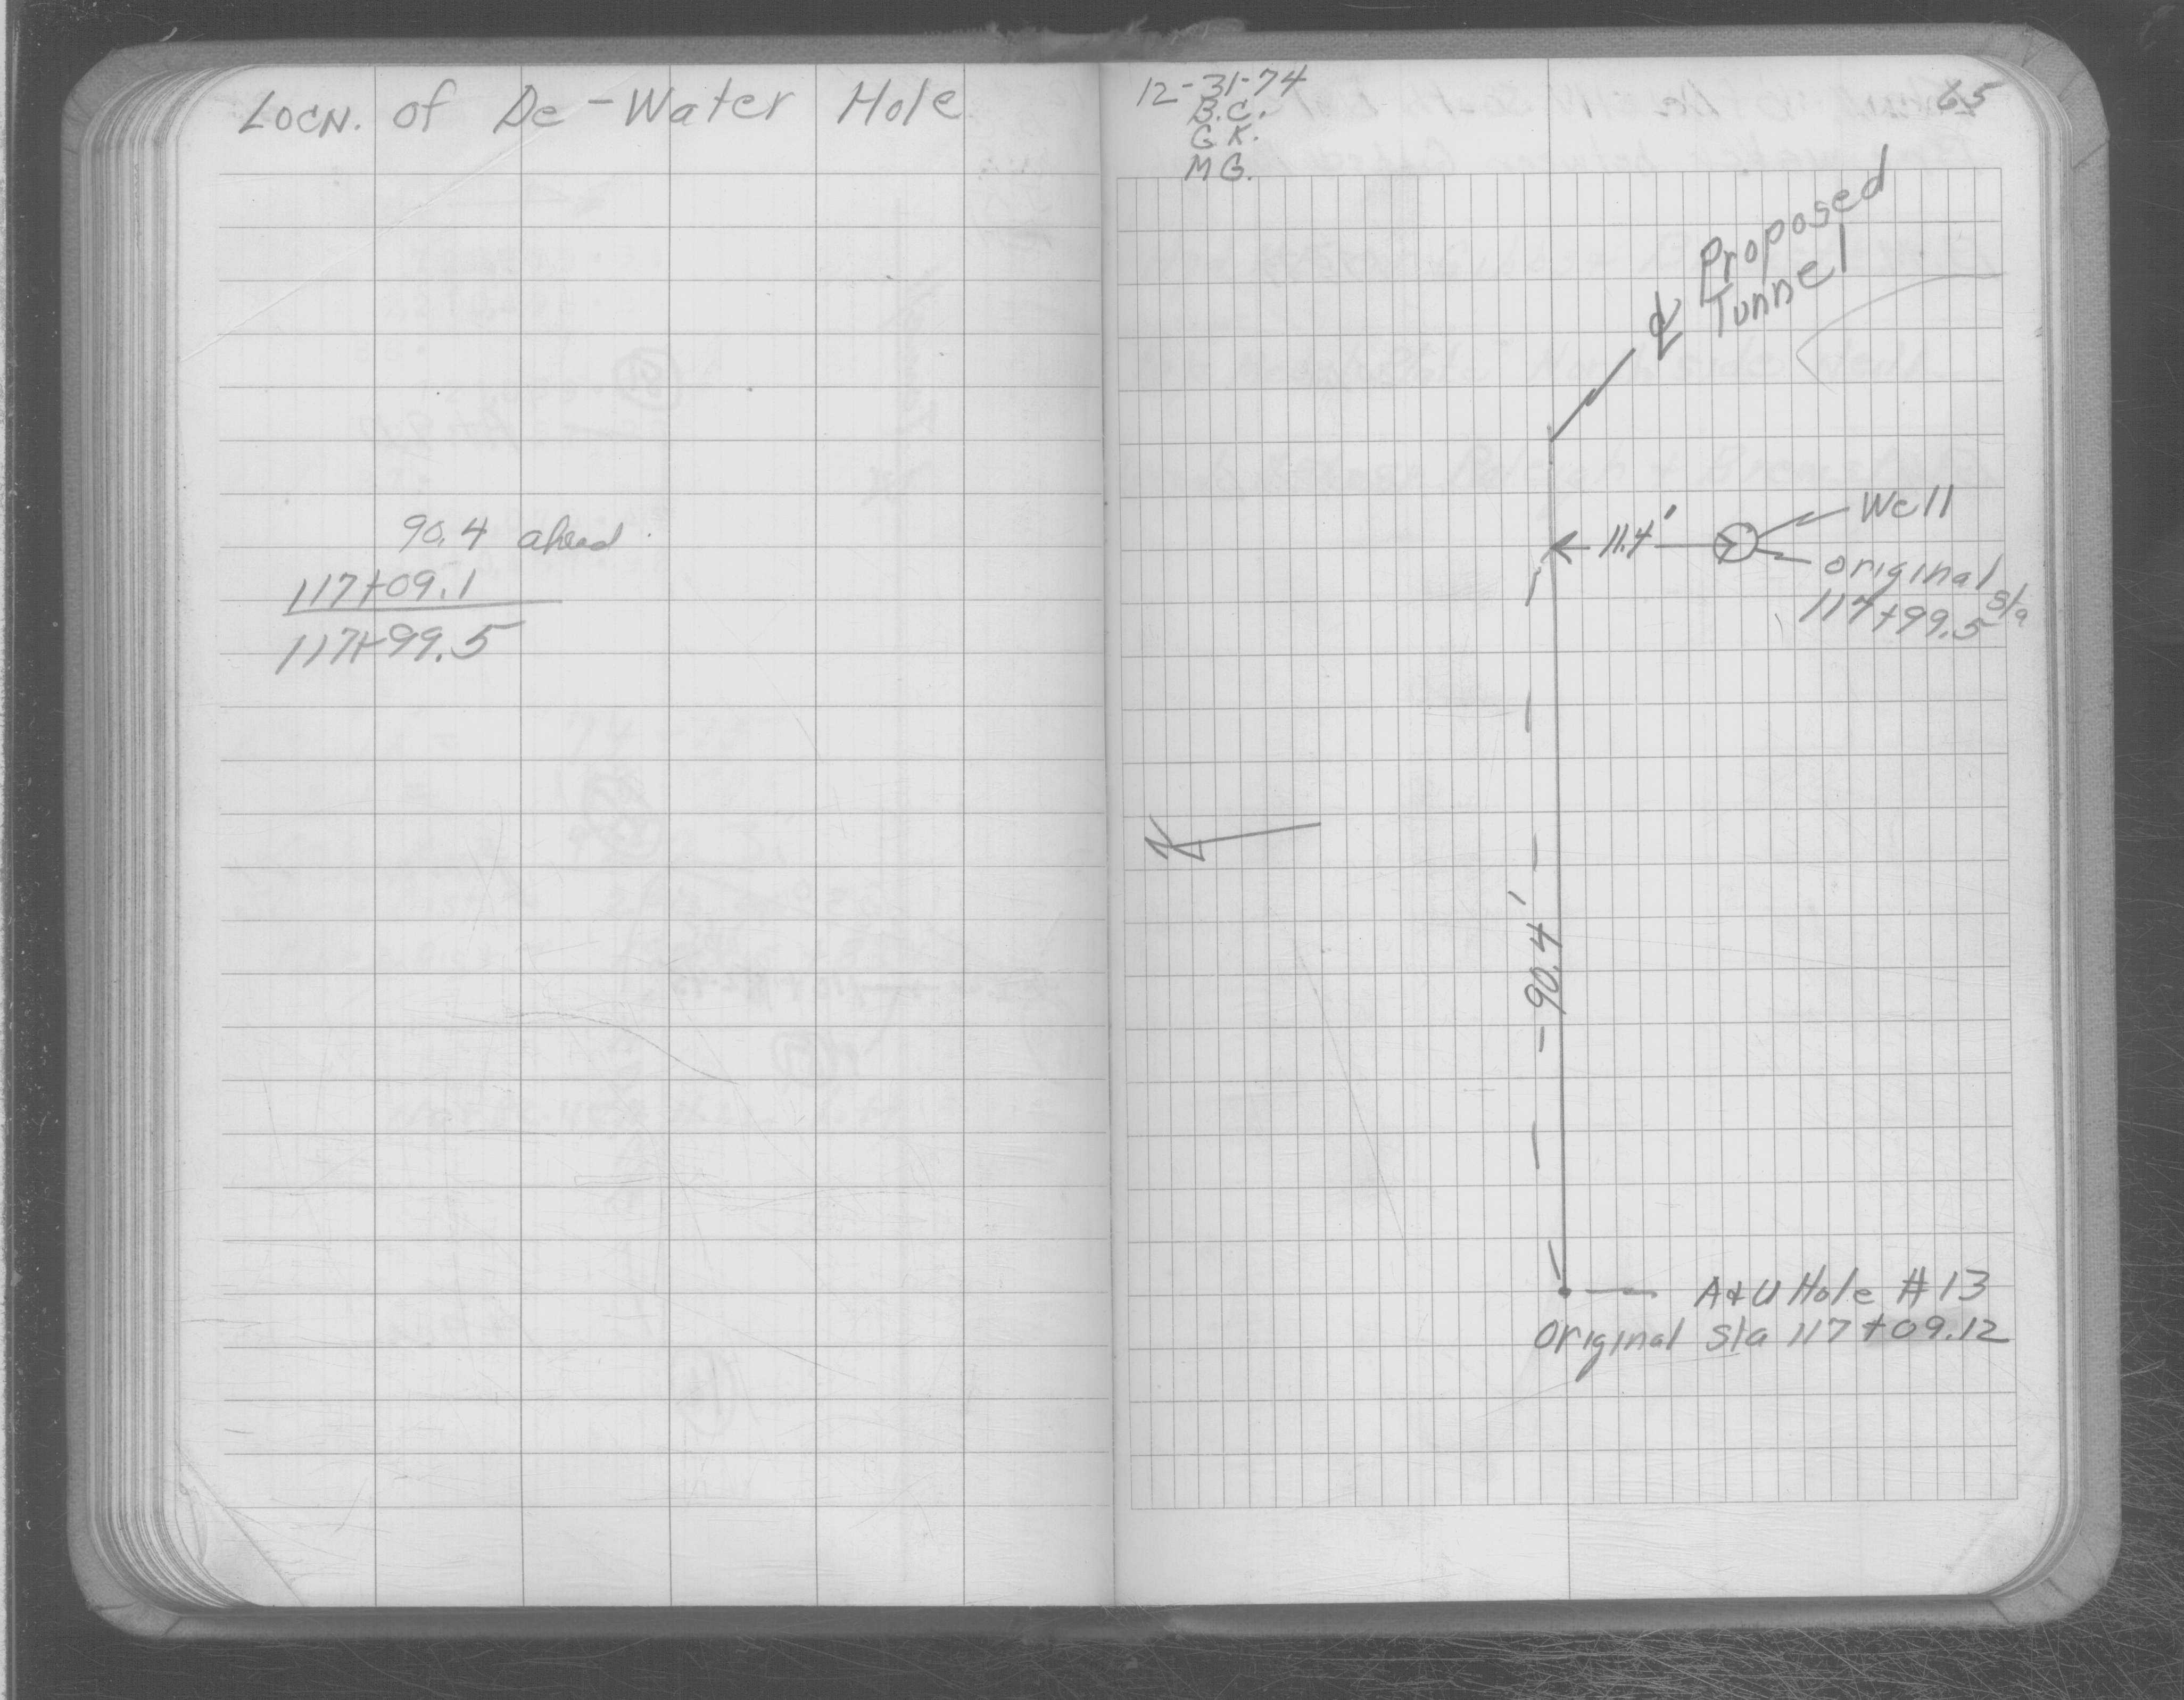 Locn. of De-Water Hole
90.4 ahead
117+09.1
117+99.5
12-31-74
B.C.
G K.
M G.
65
℄ Proposed
Tunnel
11.4'
Well
original sta
117+99.5
90.4'
A&U Hole #13
Original sta 117+09.12